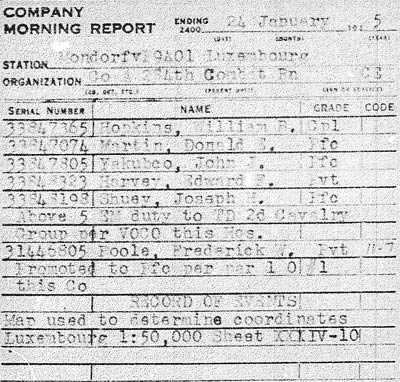 COMPANY
MORNING REPORT
ENDING 2400 24 January 194 5
(DATE) (MONTH) (YEAR)
STATION Luxembourg
ORGANIZATION Co A Bn CE
(CO. DET. ETC.) (PARENT UNIT) (ARM OR SERVICE)
SERIAL NUMBER NAME GRADE CODE
33847365 Hopkins, William B. Cpl
33847074 Martin, Donald E. Pfc
33847805 Yakubco, John J. Pfc
Harvey, Edward F. Pvt
33848198 Shuey, Joseph H. Pfc
Above 5 EM duty to TD 2d Cavalry
Group per VOCO this Hqs.
31446805 Poole, Frederick Pvt
Promoted to Pfc per par 1 O #1
this Co
RECORD OF EVENTS
Map used to determine coordinates
Luxembourg 1:50,000 Sheet XXXIV-10